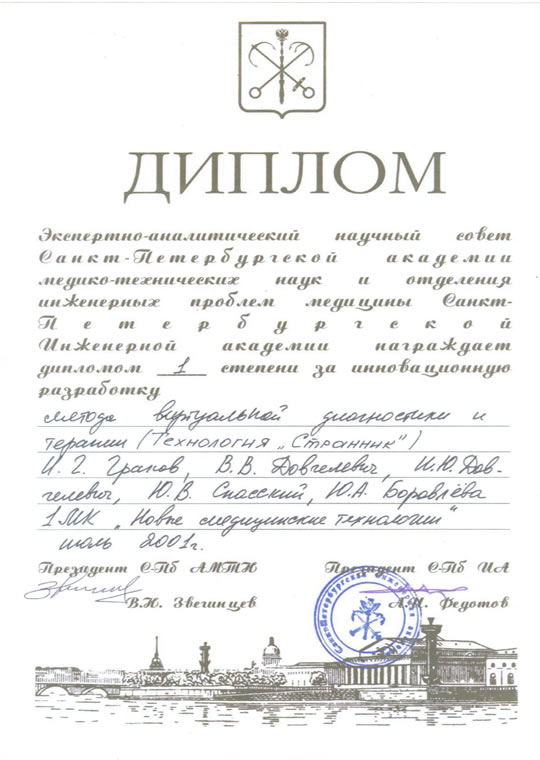 ДИПЛОМ
Экспертно-аналитический научный совет
Санкт-Петербургской академии
медико-технических наук и отделения
инженерных проблем медицины Санкт-
Петербургской
Инженерной академии награждает
дипломом 1 степени за инновационную
разработку
метода виртуальной диагностики и
терапии (Технология „Странник")
В.В. Довгелевич, И.Ю. Дов-
гелевич, Ю.В. Спасский, Ю.А. Боровлёва
„Новые медицинские технологии"
июль 2001г.
Президент СПб АМТН
Президент СПб ИА
В.Н. Звегинцев
Федотов